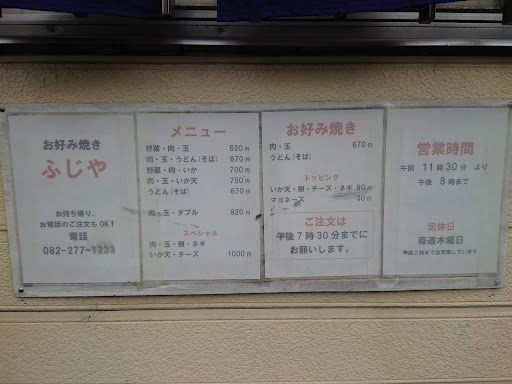 お好み焼き
ふじや
お持ち帰り、
お電話のご注文もOK！
電話
082-277-1233
メニュー
野菜・肉・玉 620円
肉・玉・うどん(そば) 670円
野菜・肉・いか 700円
肉・玉・いか天 750円
うどん(そば) 670円
肉・玉・ダブル 820円
スペシャル
肉・玉・餅・ネギ
いか天・チーズ 1000円
お好み焼き
肉・玉 670円
うどん(そば)
トッピング
いか天・餅・チーズ・ネギ 80円
マヨネーズ 30円
ご注文は
午後7時30分までに
お願いします。
営業時間
午前 11時30分 より
午後 8時まで
定休日
毎週木曜日
午後2時までは営業しています